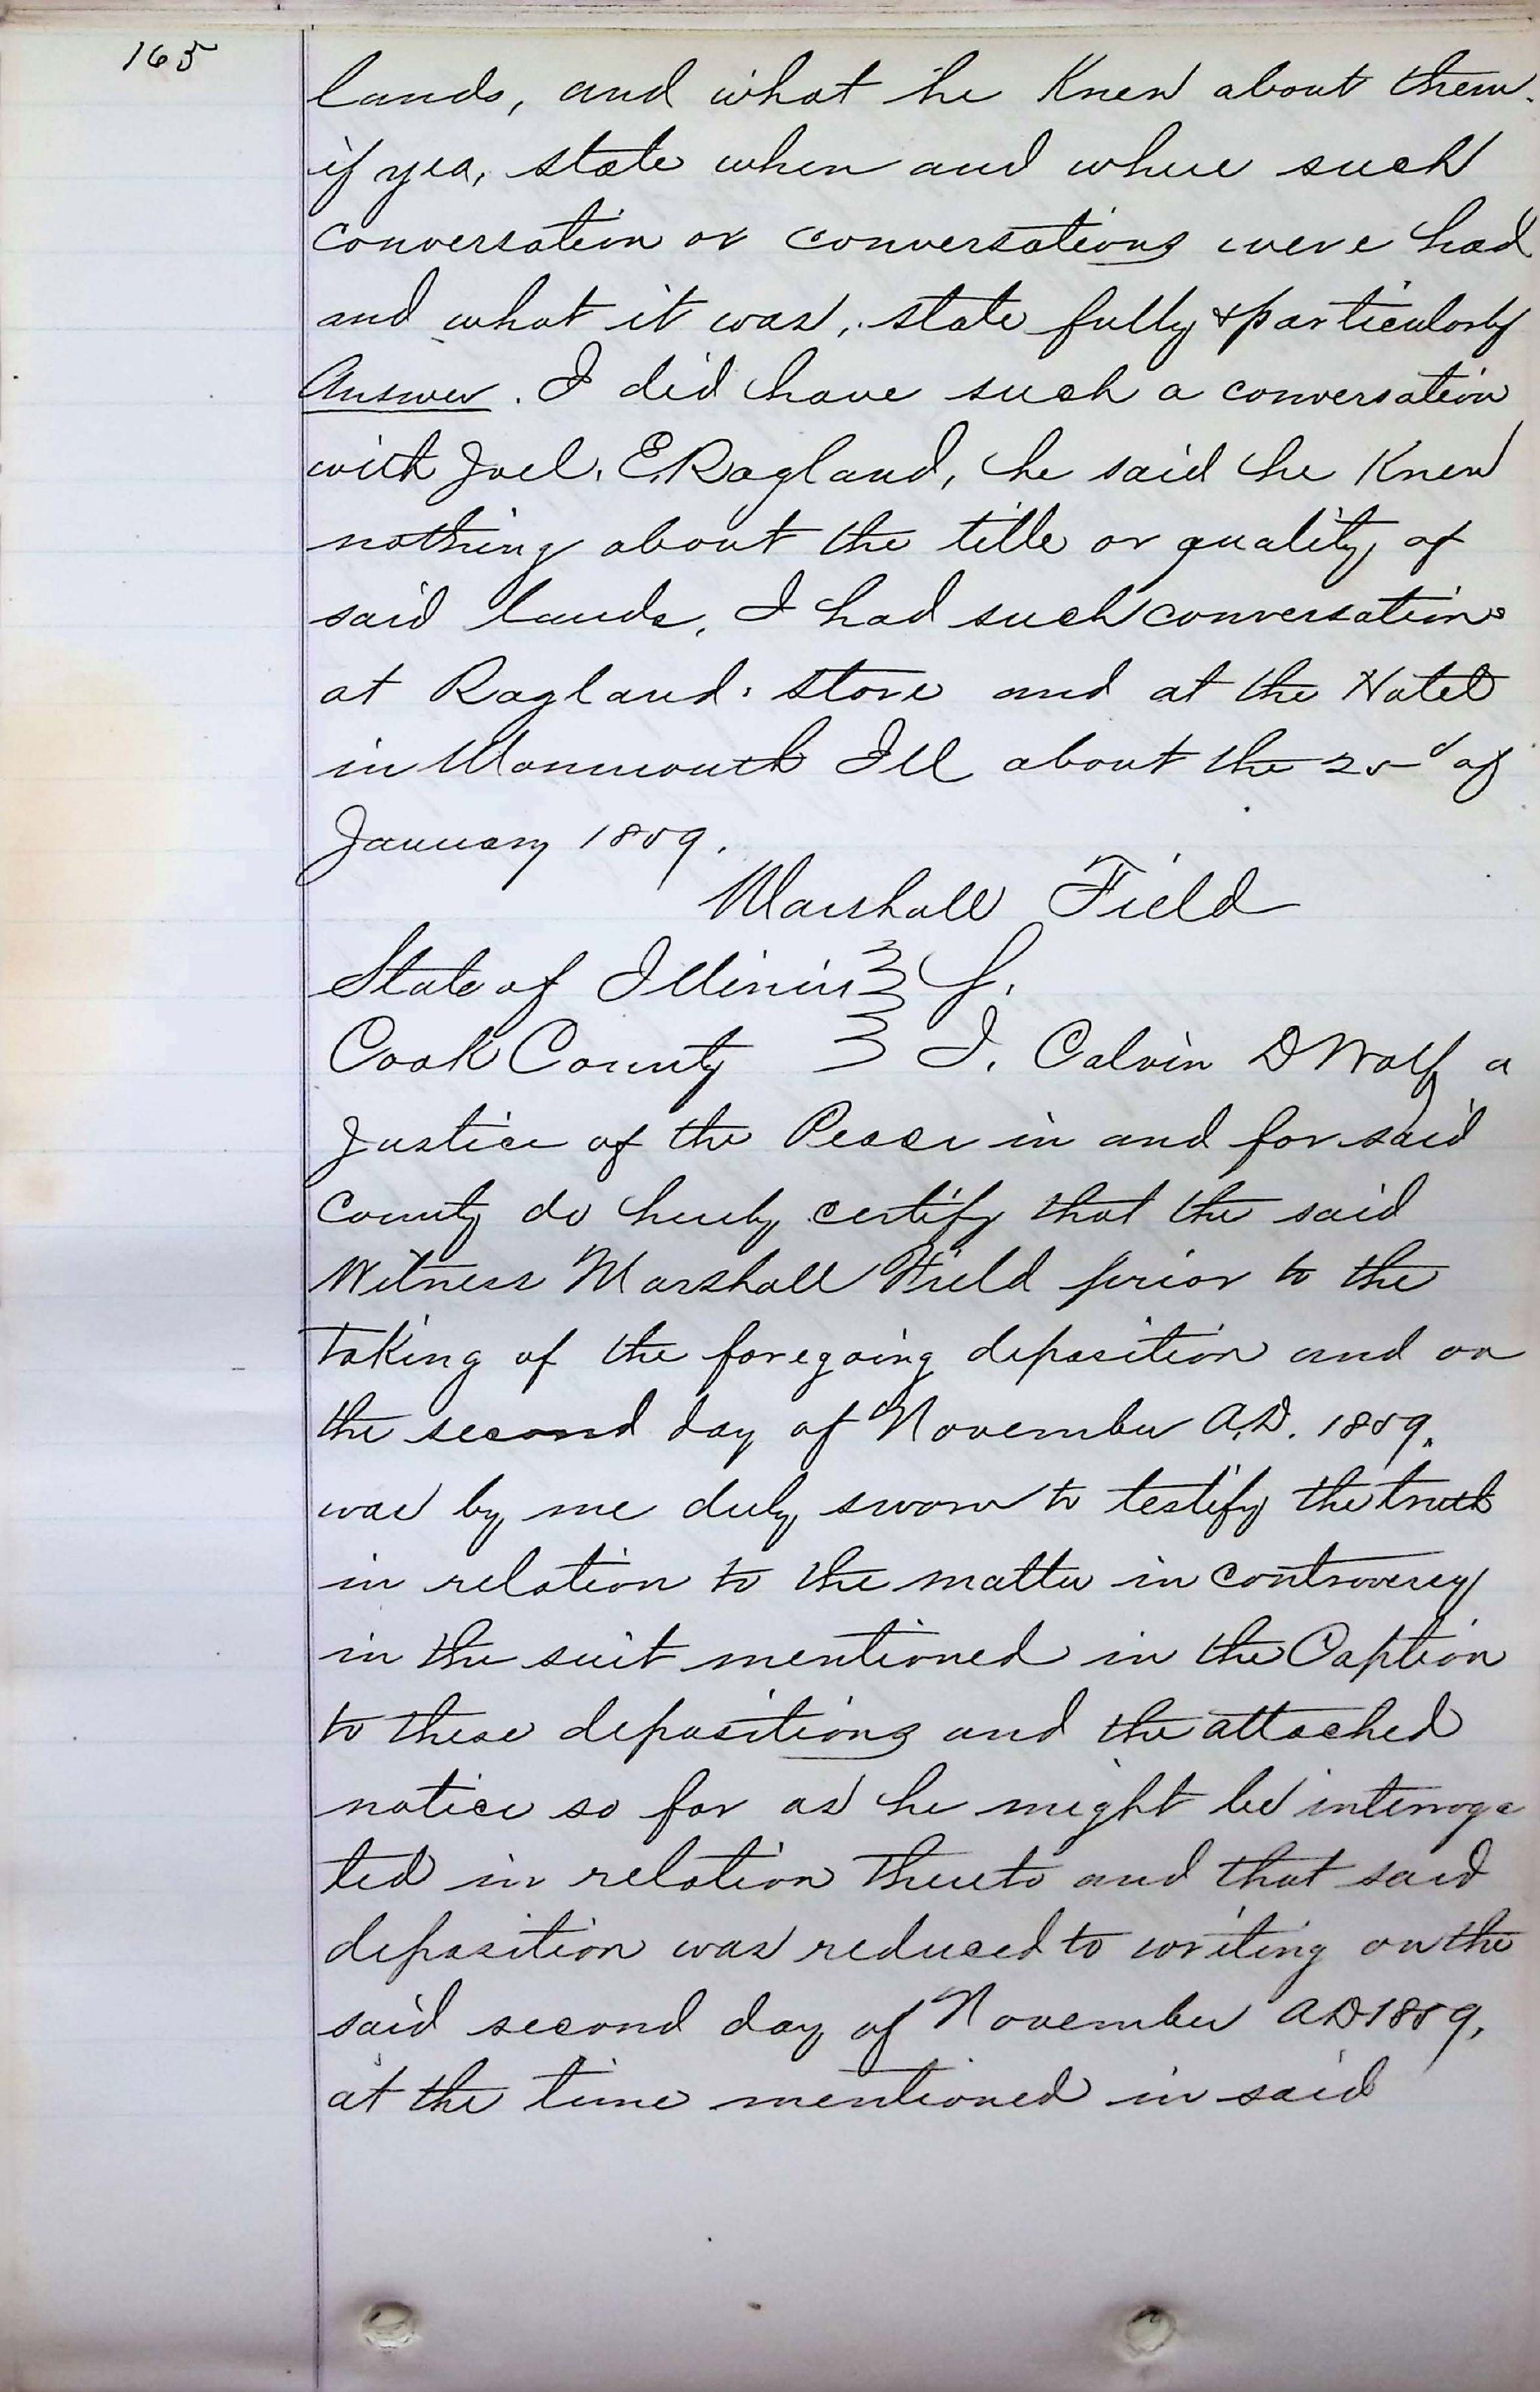 165
lands, and what he Knew about them.
if yea, state when and where such
conversation or conversations were had
and what it was, state fully & particularly
Answer. I did have such a conversation
with Joel. E. Ragland, he said he Knew
nothing about the title or quality of
said lands, I had such conversations
at Raglands store and at the Hotel
in Monmouth Ill about the 25d of
January 1859.
Marshall Field
State of Illinois } S.
Cook County } I. Calvin D Wolf a
Justice of the Peace in and for said
County do hereby certify that the said
Witness Marshall Field prior to the
taking of the foregoing deposition and on
the second day of November A.D. 1859.
was by me duly sworn to testify the truth
in relation to the matter in controversy
in the suit mentioned in the Caption
to these depositions and the attached
notice so far as he might be interroga
ted in relation thereto and that said
deposition was reduced to writing on the
said second day of November AD 1859,
at the time mentioned in said